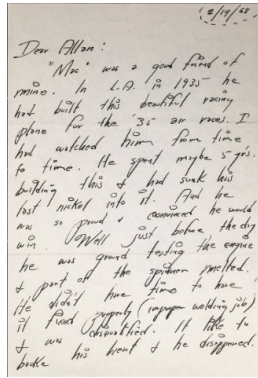 (2/19/68
Dear Allan:
"Mac" was a good friend of
mine. In L.A. in 1935 he
had built this beautiful racing
plane for the '35 air races. I
had watched him from time
to time. He spent maybe 5 yrs.
building this & had sunk his
last nickel into it. And he
was so proud & convinced he would
win. Well just before the day
he was ground testing the engine
& part of the spinner melted.
He didn't have time to have
it fixed properly (improper welding job)
& was disqualified. It like to
broke his heart & he disappeared.